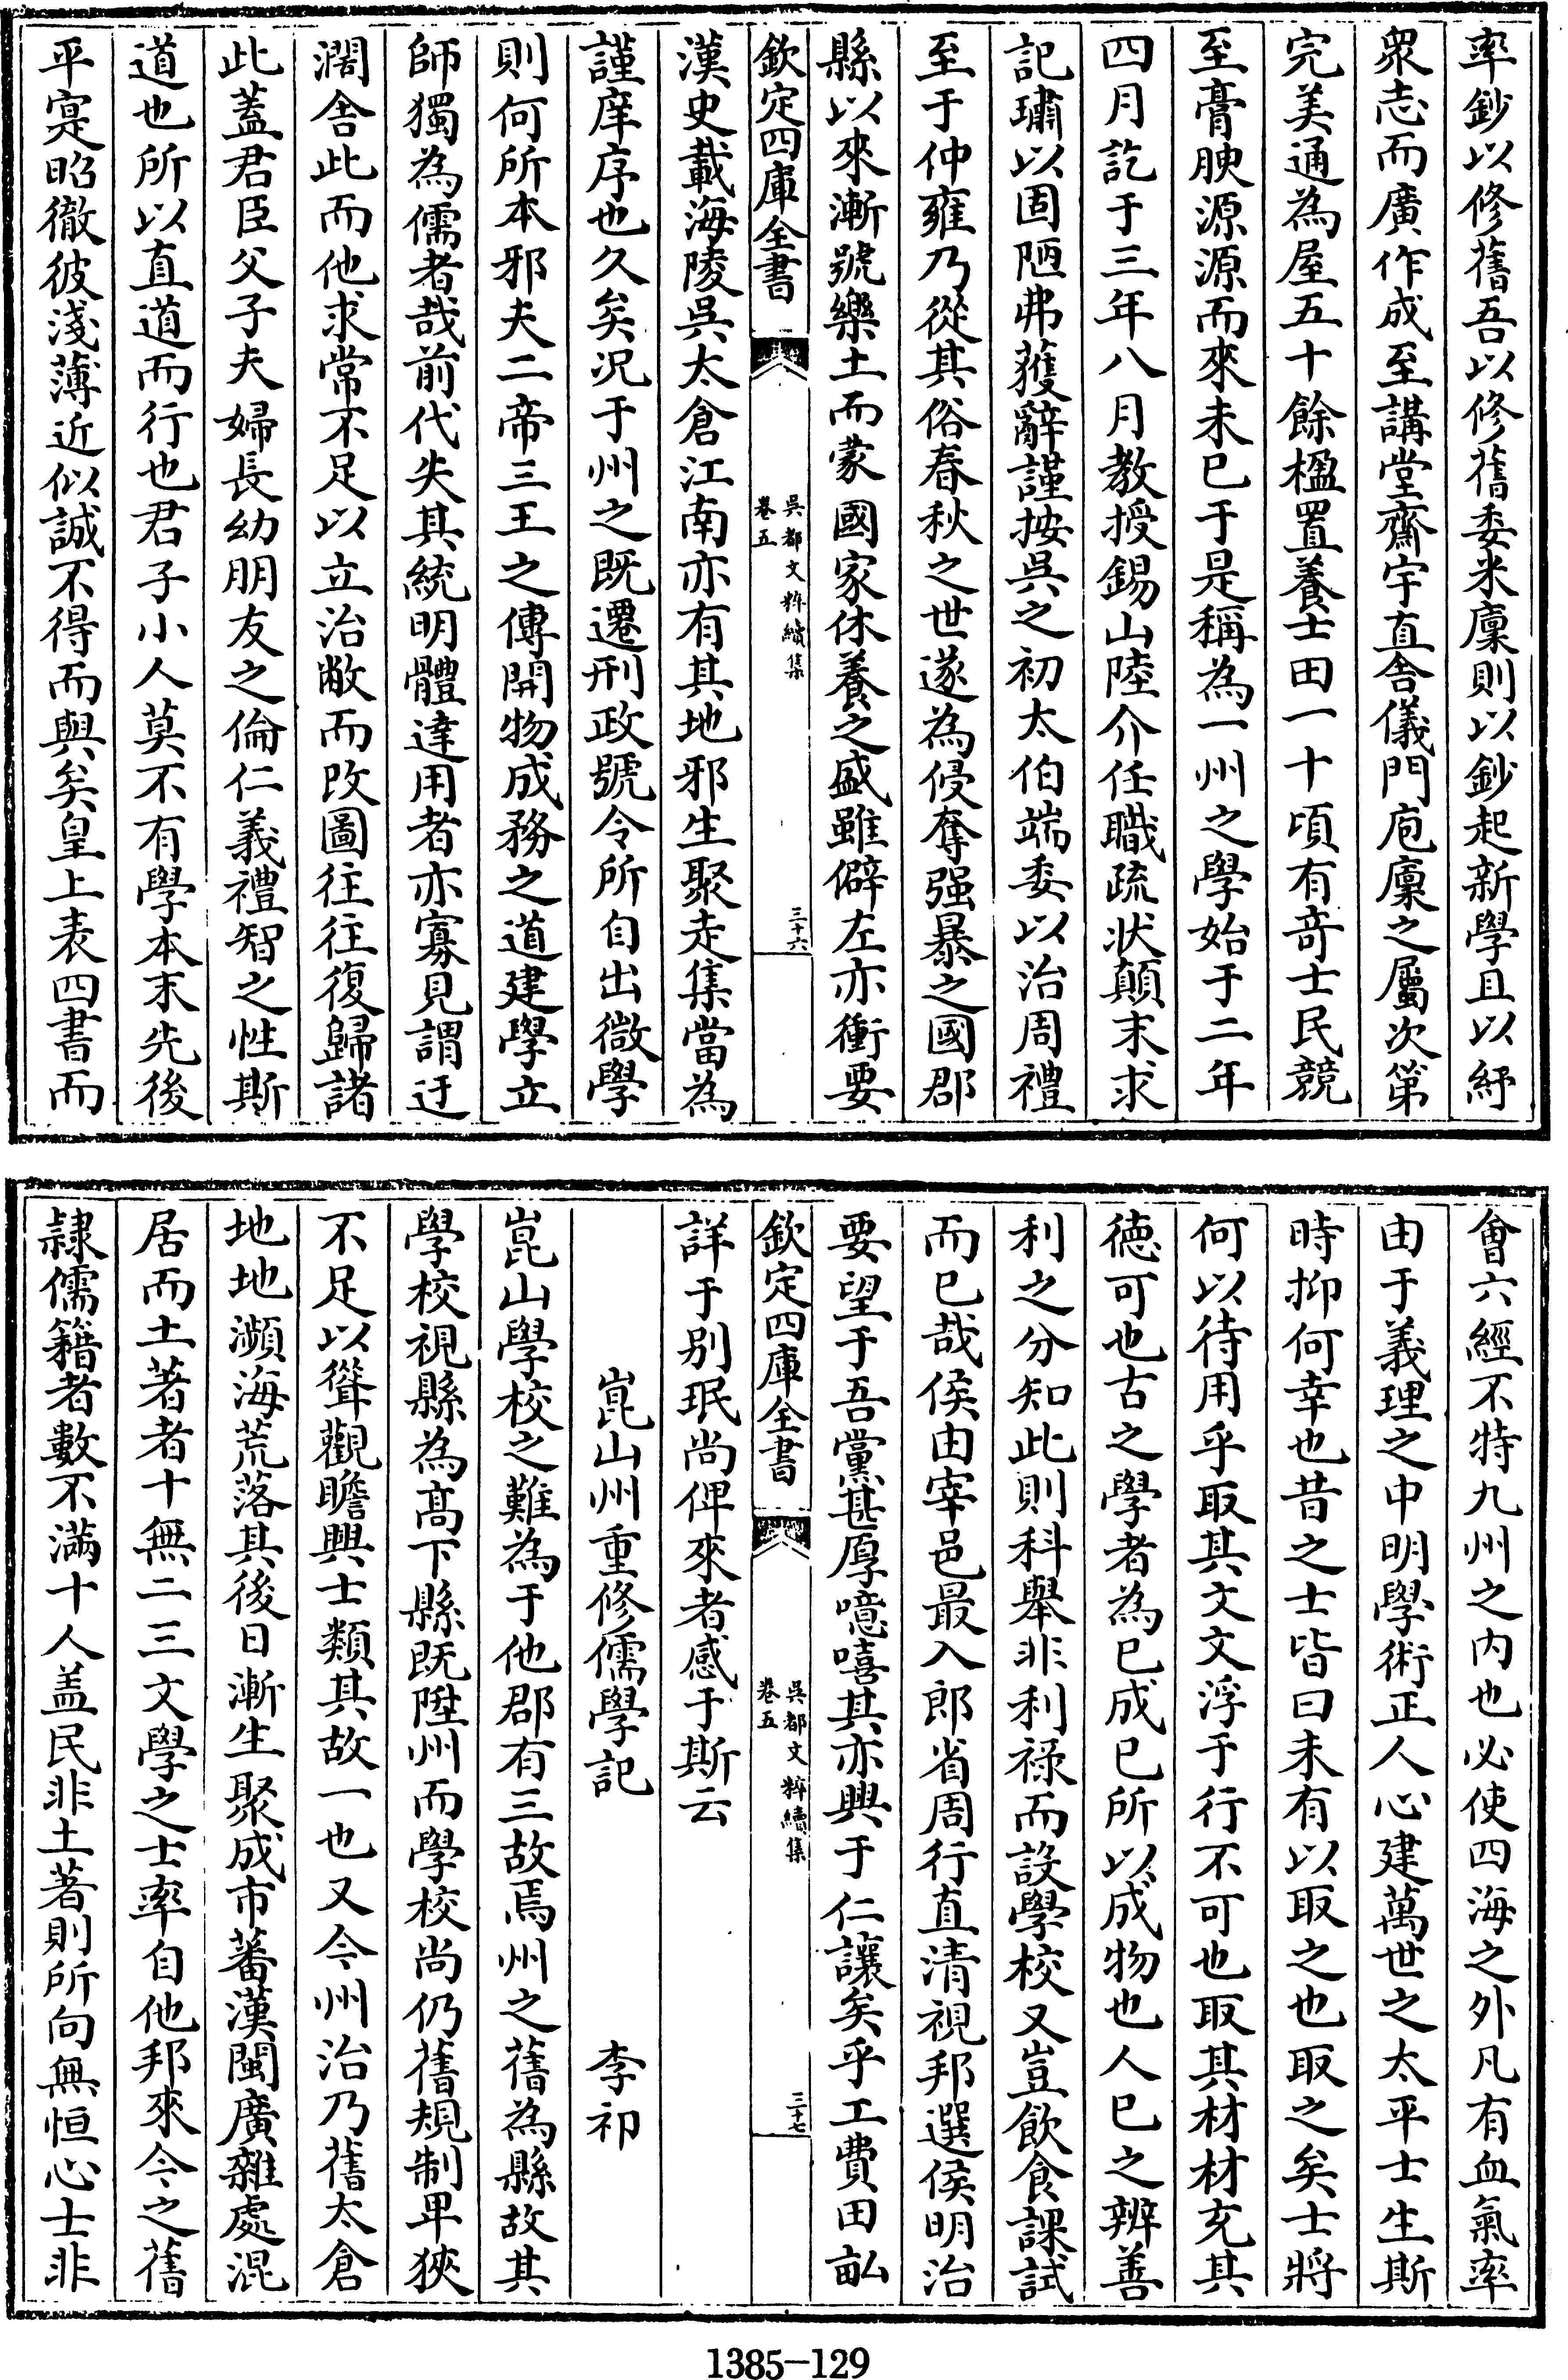 率鈔以修舊吾以修舊委米廩則以鈔起新學且以紓
衆志而廣作成至講堂齋宇直舍儀門庖廩之屬次第
完美通為屋五十餘楹置養士田一十頃有竒士民競
至膏腴源源而來未已于是稱為一州之學始于二年
四月訖于三年八月教授錫山陸介任職疏状顛末求
記璛以固陋弗獲辭謹按吳之初太伯端委以治周禮
至于仲雍乃從其俗春秋之世遂為侵奪强暴之國郡
縣以來漸號樂土而蒙 國家休養之盛雖僻左亦衝要
欽定四庫全書
吳都文粹續集
卷五
三十六
漢史載海陵吳太倉江南亦有其地邪生聚走集當為
謹庠序也久矣况于州之既遷刑政號令所自出微學
則何所本邪夫二帝三王之傳開物成務之道建學立
師獨為儒者哉前代失其統明體達用者亦寡見謂迂
濶舍此而他求常不足以立治敝而改圖往往復歸諸
此蓋君臣父子夫婦長幼朋友之倫仁義禮智之性斯
道也所以直道而行也君子小人莫不有學本末先後
平寔昭徹彼淺薄近似誠不得而與矣皇上表四書而
會六經不特九州之内也必使四海之外凡有血氣率
由于義理之中明學術正人心建萬世之太平士生斯
時抑何幸也昔之士皆曰未有以取之也取之矣士將
何以待用乎取其文文浮于行不可也取其材材充其
德可也古之學者為已成已所以成物也人已之辨善
利之分知此則科舉非利禄而設學校又豈飲食課試
而已哉侯由宰邑最入郎省周行直清視邦選侯明治
要望于吾黨甚厚噫嘻其亦興于仁讓矣乎工費田畆
欽定四庫全書
吳都文粹續集
卷五
三十七
詳于别珉尚俾來者感于斯云
崑山州重修儒學記
李祁
崑山學校之難為于他郡有三故焉州之舊為縣故其
學校視縣為髙下縣既陞州而學校尚仍舊規制卑狹
不足以聳觀瞻興士類其故一也又今州治乃舊太倉
地地瀕海荒落其後日漸生聚成市蕃漢閩廣雜處混
居而土著者十無二三文學之士率自他邦來今之舊
隷儒籍者數不滿十人盖民非土著則所向無恒心士非
1385-129